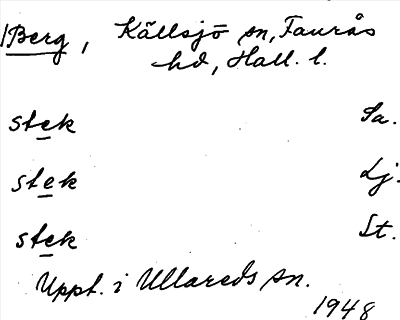 Berg, Källsjö sn, Faurås
hd, Hall. l.
stek Sa.
stek Lj.
stek St.
Uppt. i Ullareds sn.
1948